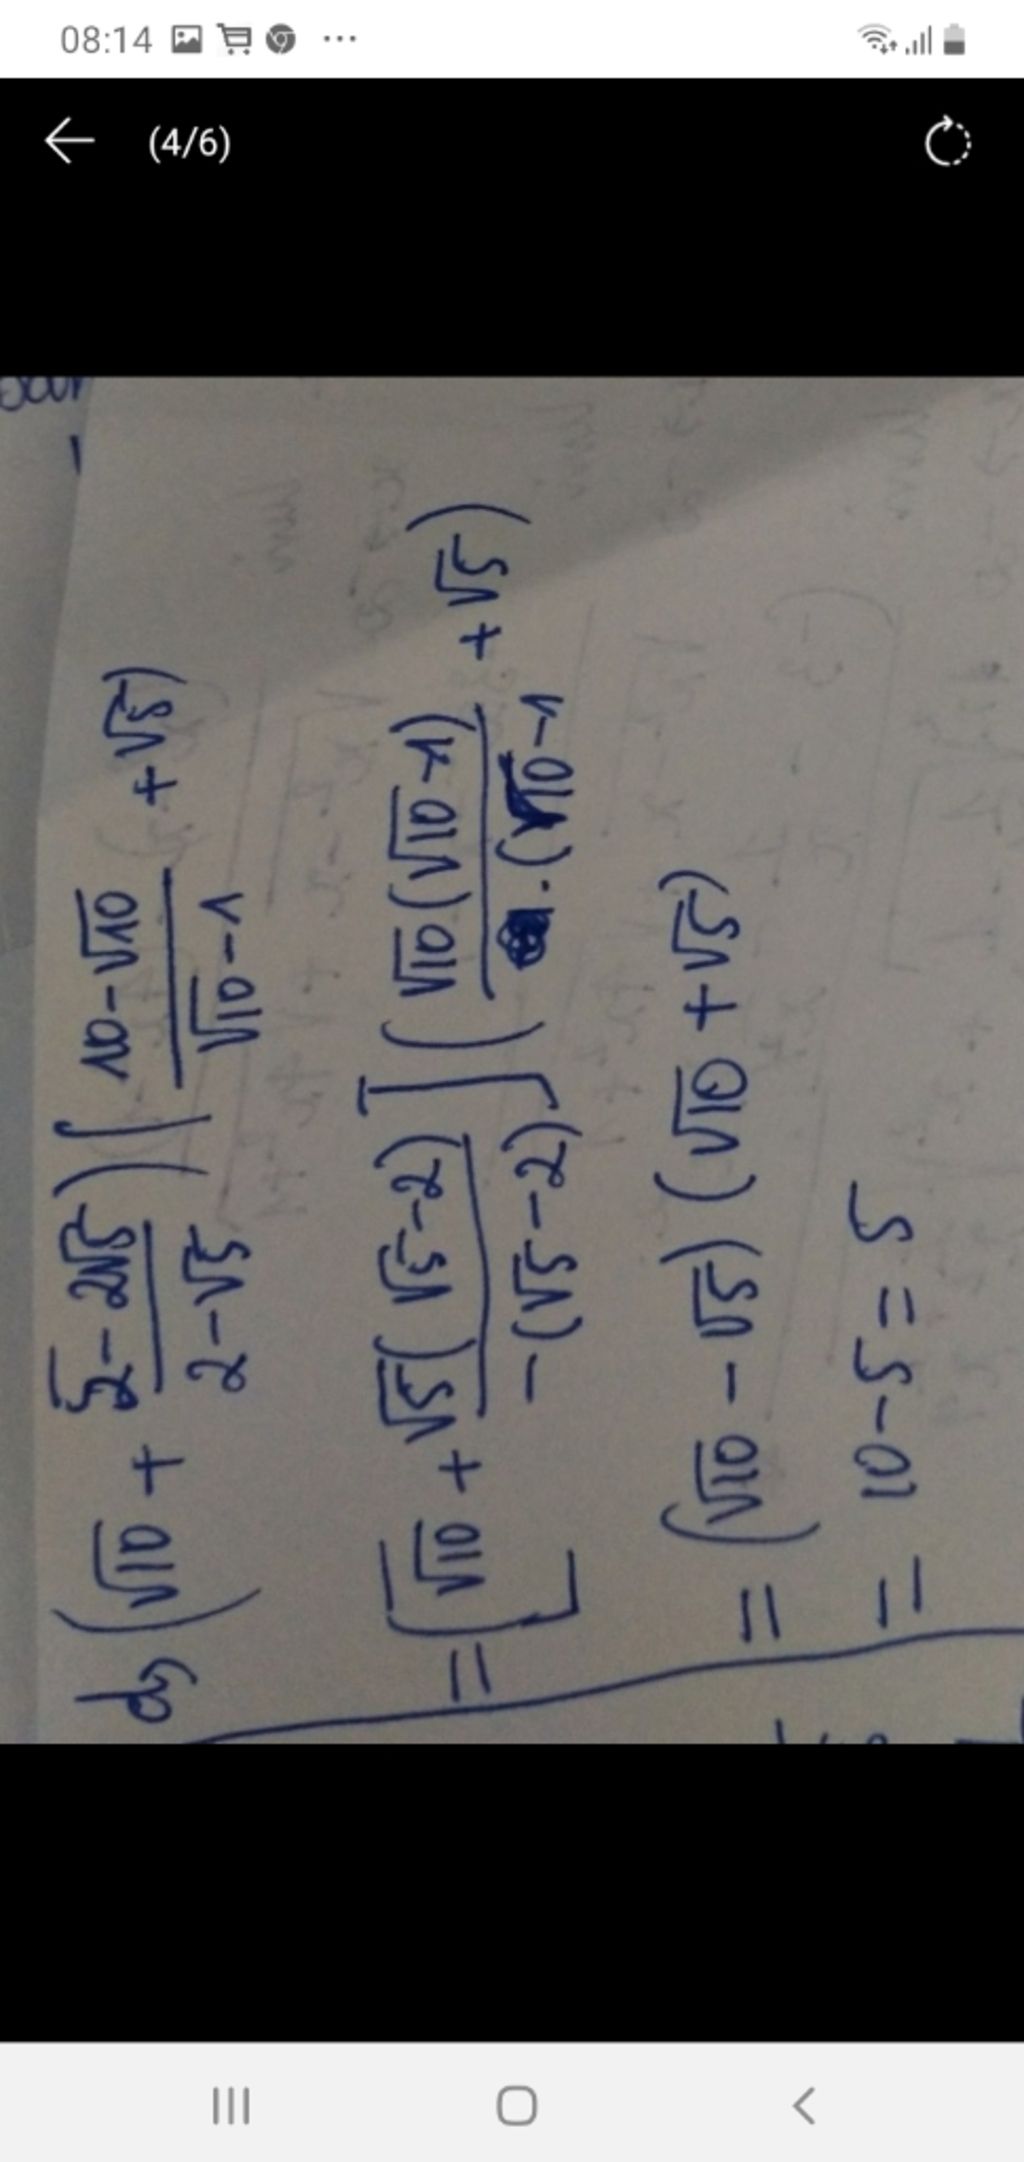 08:14
(4/6)
g) (√10 + (5-2√5)/(2-√5)) ((10-√10)/(√10-1) + √5)
= [√10 + √5(√5-2)/-(√5-2)] (√10(√10-1)/(√10-1) + √5)
= (√10 - √5) (√10 + √5)
= 10-5 = 5